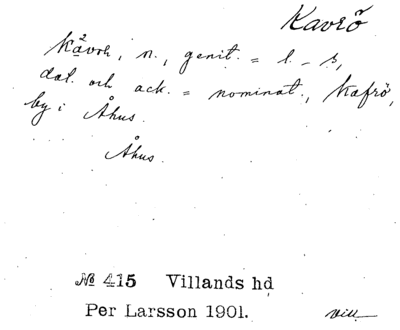 Kavrö
Kåvrö, n., genit. = l. - s,
dat. och ack. = nominat., Kafrö,
by i Åhus.
Åhus.
№ 415 Villands hd
Per Larsson 1901. vill